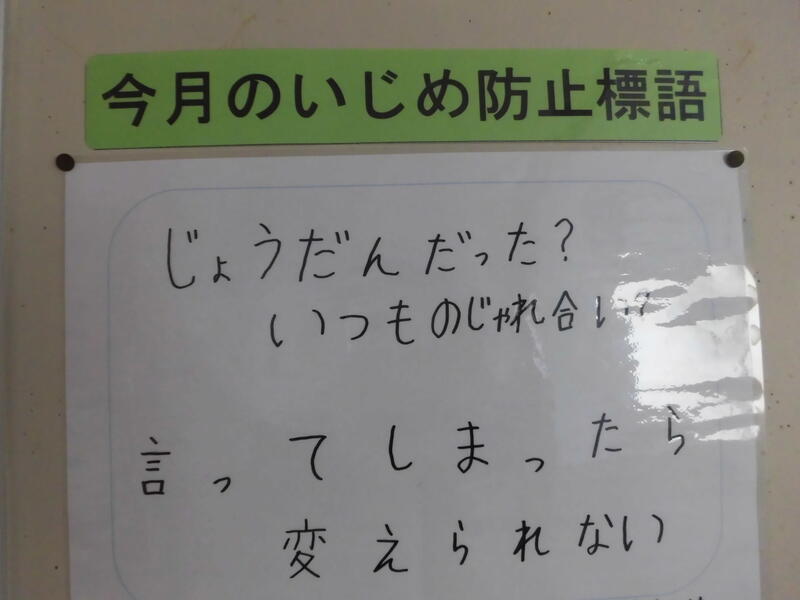 今月のいじめ防止標語
じょうだんだった?
いつものじゃれ合い?
言ってしまったら
変えられない